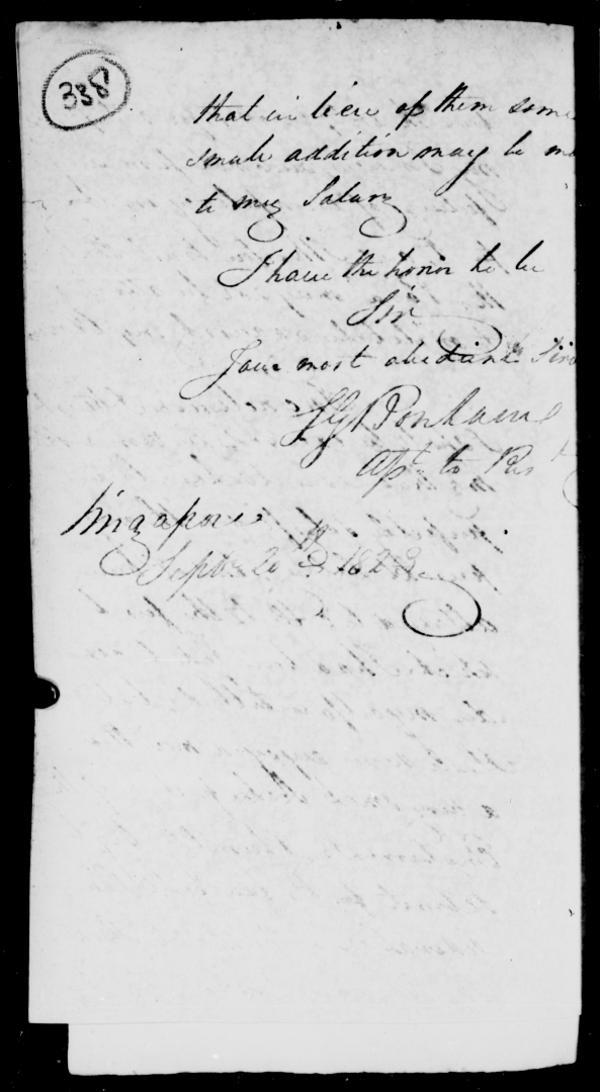 338
that in lieu of them some
small addition may be ma
to my Salary
I have the honor to be
Sir
Your most obedient Serv
SG Bonham
Ast. to Rest
Singapore
Septr 20th 1823